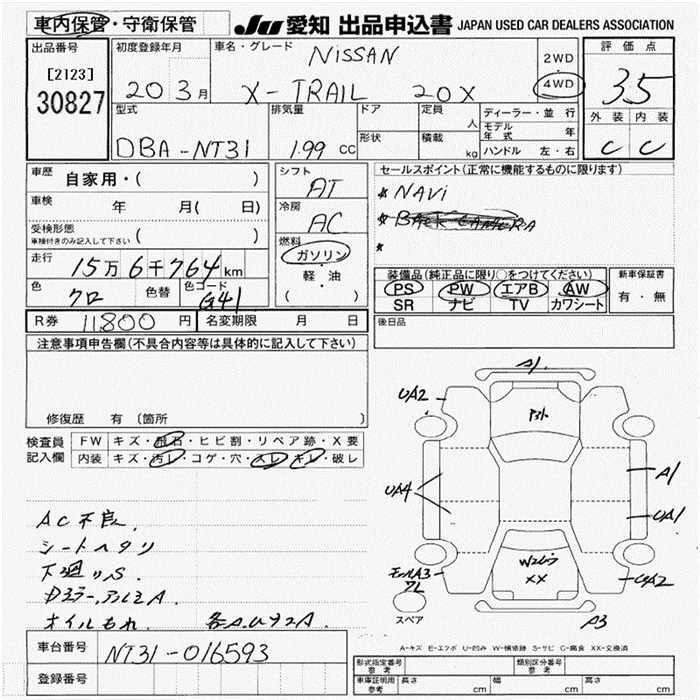 車内保管・守衛保管
JU 愛知 出品申込書 JAPAN USED CAR DEALERS ASSOCIATION
出品番号
[2123]
30827
初度登録年月
20 3月
車名・グレード
NISSAN
X-TRAIL 20X
2WD
4WD
評価点
3.5
外装 内装
C C
型式
DBA-NT31
排気量
1.99 cc
ドア
形状
定員
人
積載
kg
ディーラー・並行
モデル年式 年
ハンドル 左・右
車歴 自家用・( )
車検 年 月( 日)
受検形態
車検付きのみ記入して下さい ( )
走行 15万6千764km
色 クロ 色替 色コード G41
シフト
AT
冷房
AC
燃料
ガソリン
軽・油
( )
セールスポイント(正常に機能するものに限ります)
* NAVi
* BACK CAMERA
*
装備品(純正品に限り○をつけてください)
PS PW エアB AW
SR ナビ TV カワシート
新車保証書
有・無
R券 11800円 名変期限 月 日
後日品
注意事項申告欄(不具合内容等は具体的に記入して下さい)
修復歴 有 〔箇所 〕
検査員記入欄
FW キズ・飛石・ヒビ割・リペア跡・X要
内装 キズ・汚レ・コゲ・穴・スレ・キレ・破レ
AC不良.
シートヘタリ
下廻りS.
オイルもれ.
A1
UA2
UA4
A1
UA1
UA2
A3
W
XX
スペア
A-キズ E-エクボ U-凹み W-補修跡 S-サビ C-腐食 XX-交換済
車台番号 NT31-016593
登録番号
形式指定番号 参考
類別区分番号 参考
車庫証明用 参考 長さ cm 幅 cm 高さ cm